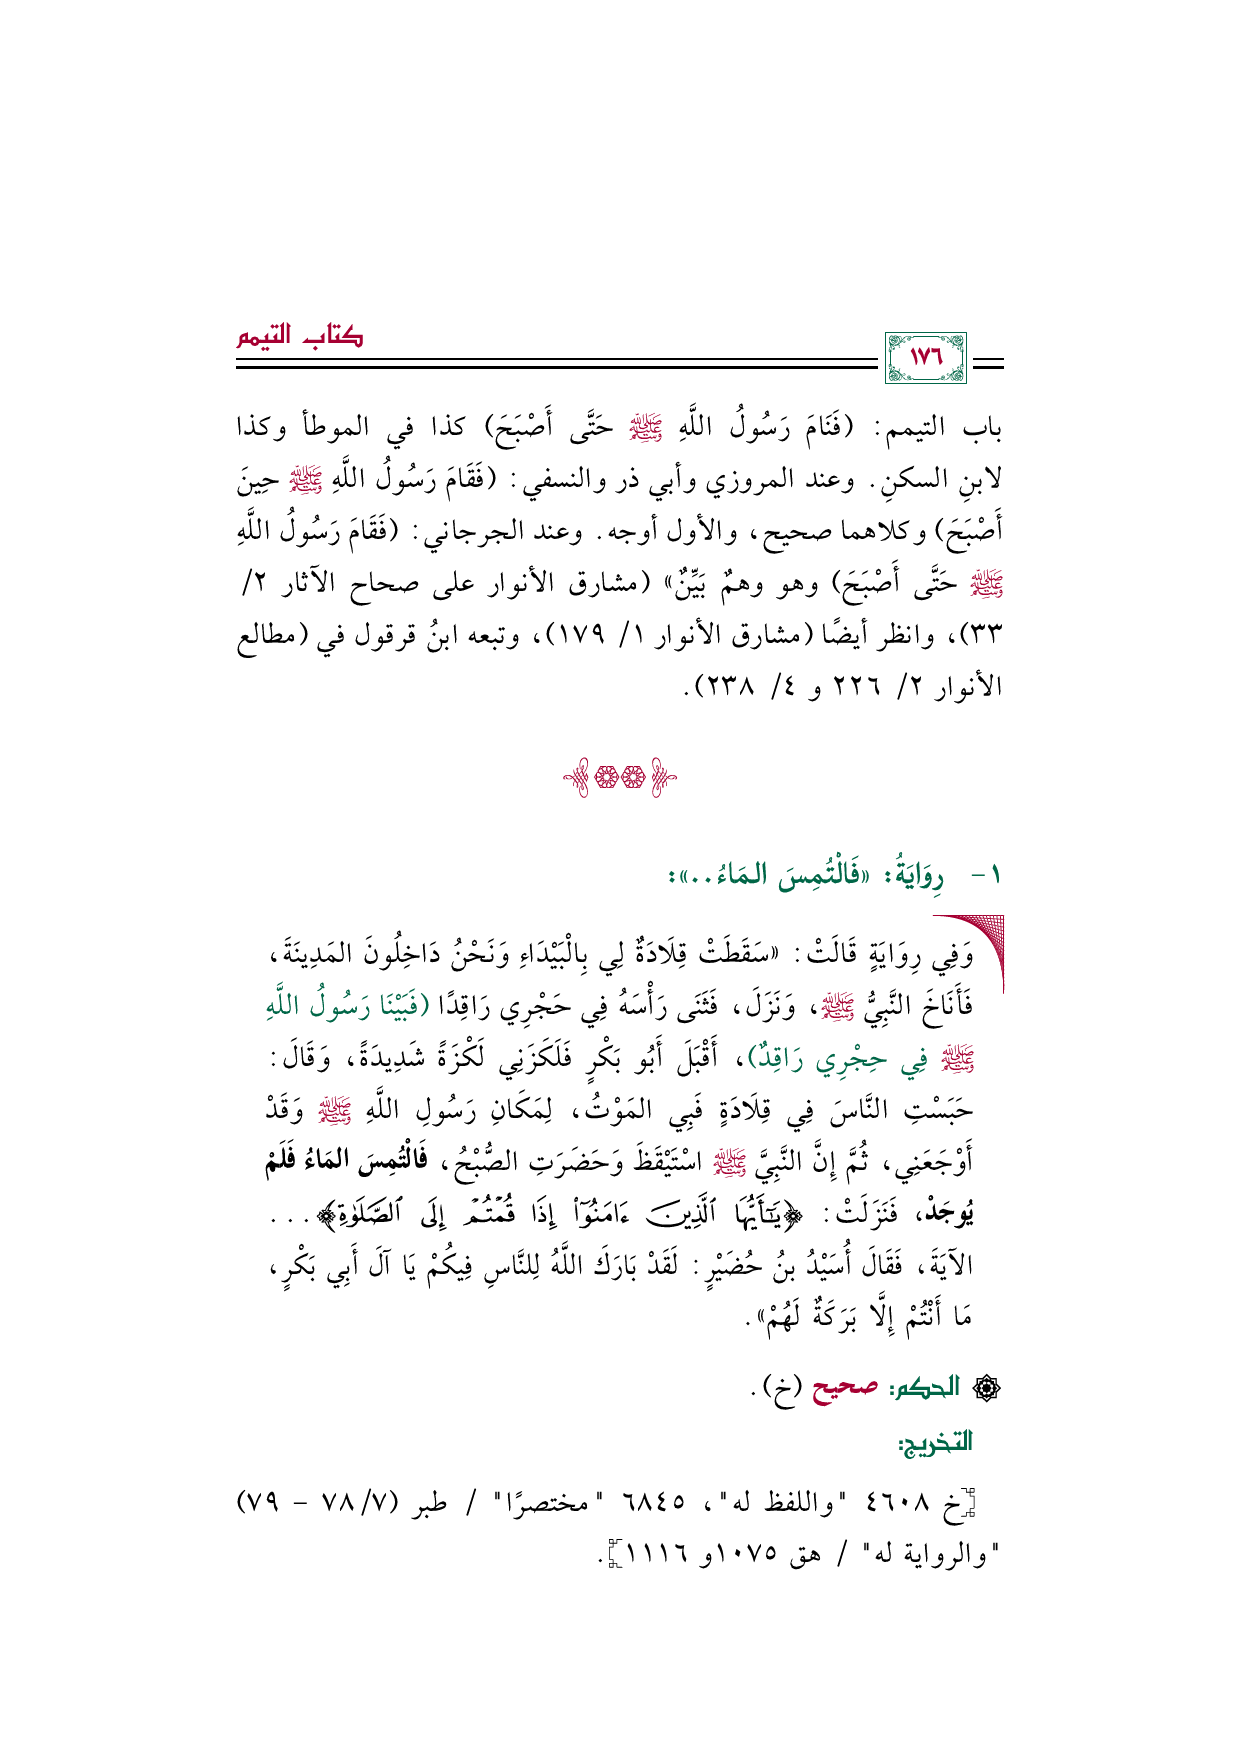 كتاب التيمم
١٧٦
باب التيمم: (فَنَامَ رَسُولُ اللَّهِ ﷺ حَتَّى أَصْبَحَ) كذا في الموطأ وكذا
لابنِ السكنِ. وعند المروزي وأبي ذر والنسفي: (فَقَامَ رَسُولُ اللَّهِ ﷺ حِينَ
أَصْبَحَ) وكلاهما صحيح، والأول أوجه. وعند الجرجاني: (فَقَامَ رَسُولُ اللَّهِ
ﷺ حَتَّى أَصْبَحَ) وهو وهمٌ بَيِّنٌ» (مشارق الأنوار على صحاح الآثار ٢/
٣٣)، وانظر أيضًا (مشارق الأنوار ١/ ١٧٩)، وتبعه ابنُ قرقول في (مطالع
الأنوار ٢/ ٢٢٦ و ٤/ ٢٣٨).
١- رِوَايَةُ: «فَالْتُمِسَ المَاءُ..»:
وَفِي رِوَايَةٍ قَالَتْ: «سَقَطَتْ قِلَادَةٌ لِي بِالْبَيْدَاءِ وَنَحْنُ دَاخِلُونَ المَدِينَةَ،
فَأَنَاخَ النَّبِيُّ ﷺ، وَنَزَلَ، فَثَنَى رَأْسَهُ فِي حَجْرِي رَاقِدًا (فَبَيْنَا رَسُولُ اللَّهِ
ﷺ فِي حِجْرِي رَاقِدٌ)، أَقْبَلَ أَبُو بَكْرٍ فَلَكَزَنِي لَكْزَةً شَدِيدَةً، وَقَالَ:
حَبَسْتِ النَّاسَ فِي قِلَادَةٍ فَبِي المَوْتُ، لِمَكَانِ رَسُولِ اللَّهِ ﷺ وَقَدْ
أَوْجَعَنِي، ثُمَّ إِنَّ النَّبِيَّ ﷺ اسْتَيْقَظَ وَحَضَرَتِ الصُّبْحُ، فَالْتُمِسَ المَاءُ فَلَمْ
يُوجَدْ، فَنَزَلَتْ: ﴿يَٰٓأَيُّهَا ٱلَّذِينَ ءَامَنُوٓا۟ إِذَا قُمْتُمْ إِلَى ٱلصَّلَوٰةِ﴾...
الآيَةَ، فَقَالَ أُسَيْدُ بنُ حُضَيْرٍ: لَقَدْ بَارَكَ اللَّهُ لِلنَّاسِ فِيكُمْ يَا آلَ أَبِي بَكْرٍ،
مَا أَنْتُمْ إِلَّا بَرَكَةٌ لَهُمْ».
الحكم: صحيح (خ).
التخريج:
[خ ٤٦٠٨ "واللفظ له"، ٦٨٤٥ "مختصرًا" / طبر (٧/ ٧٨ – ٧٩)
"والرواية له" / هق ١٠٧٥و ١١١٦].